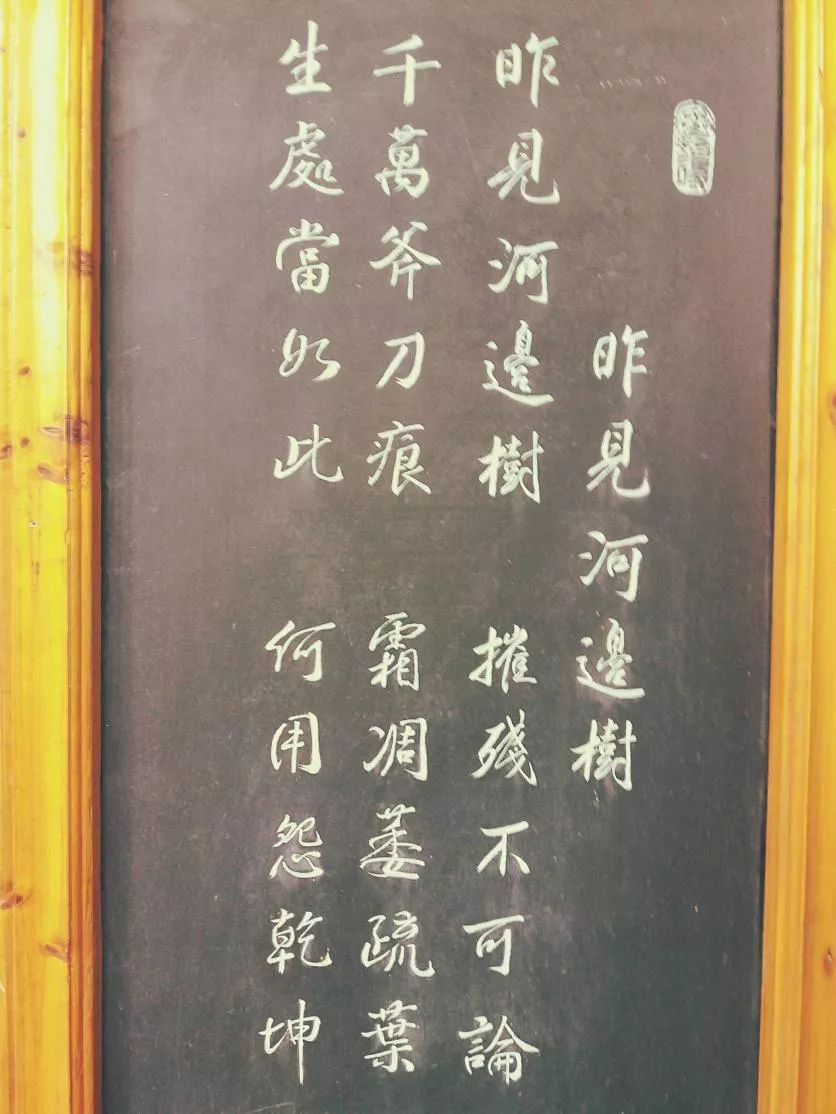 昨見河邊樹
昨見河邊樹 摧殘不可論
千萬斧刀痕 霜凋萎疏葉
生處當如此 何用怨乾坤